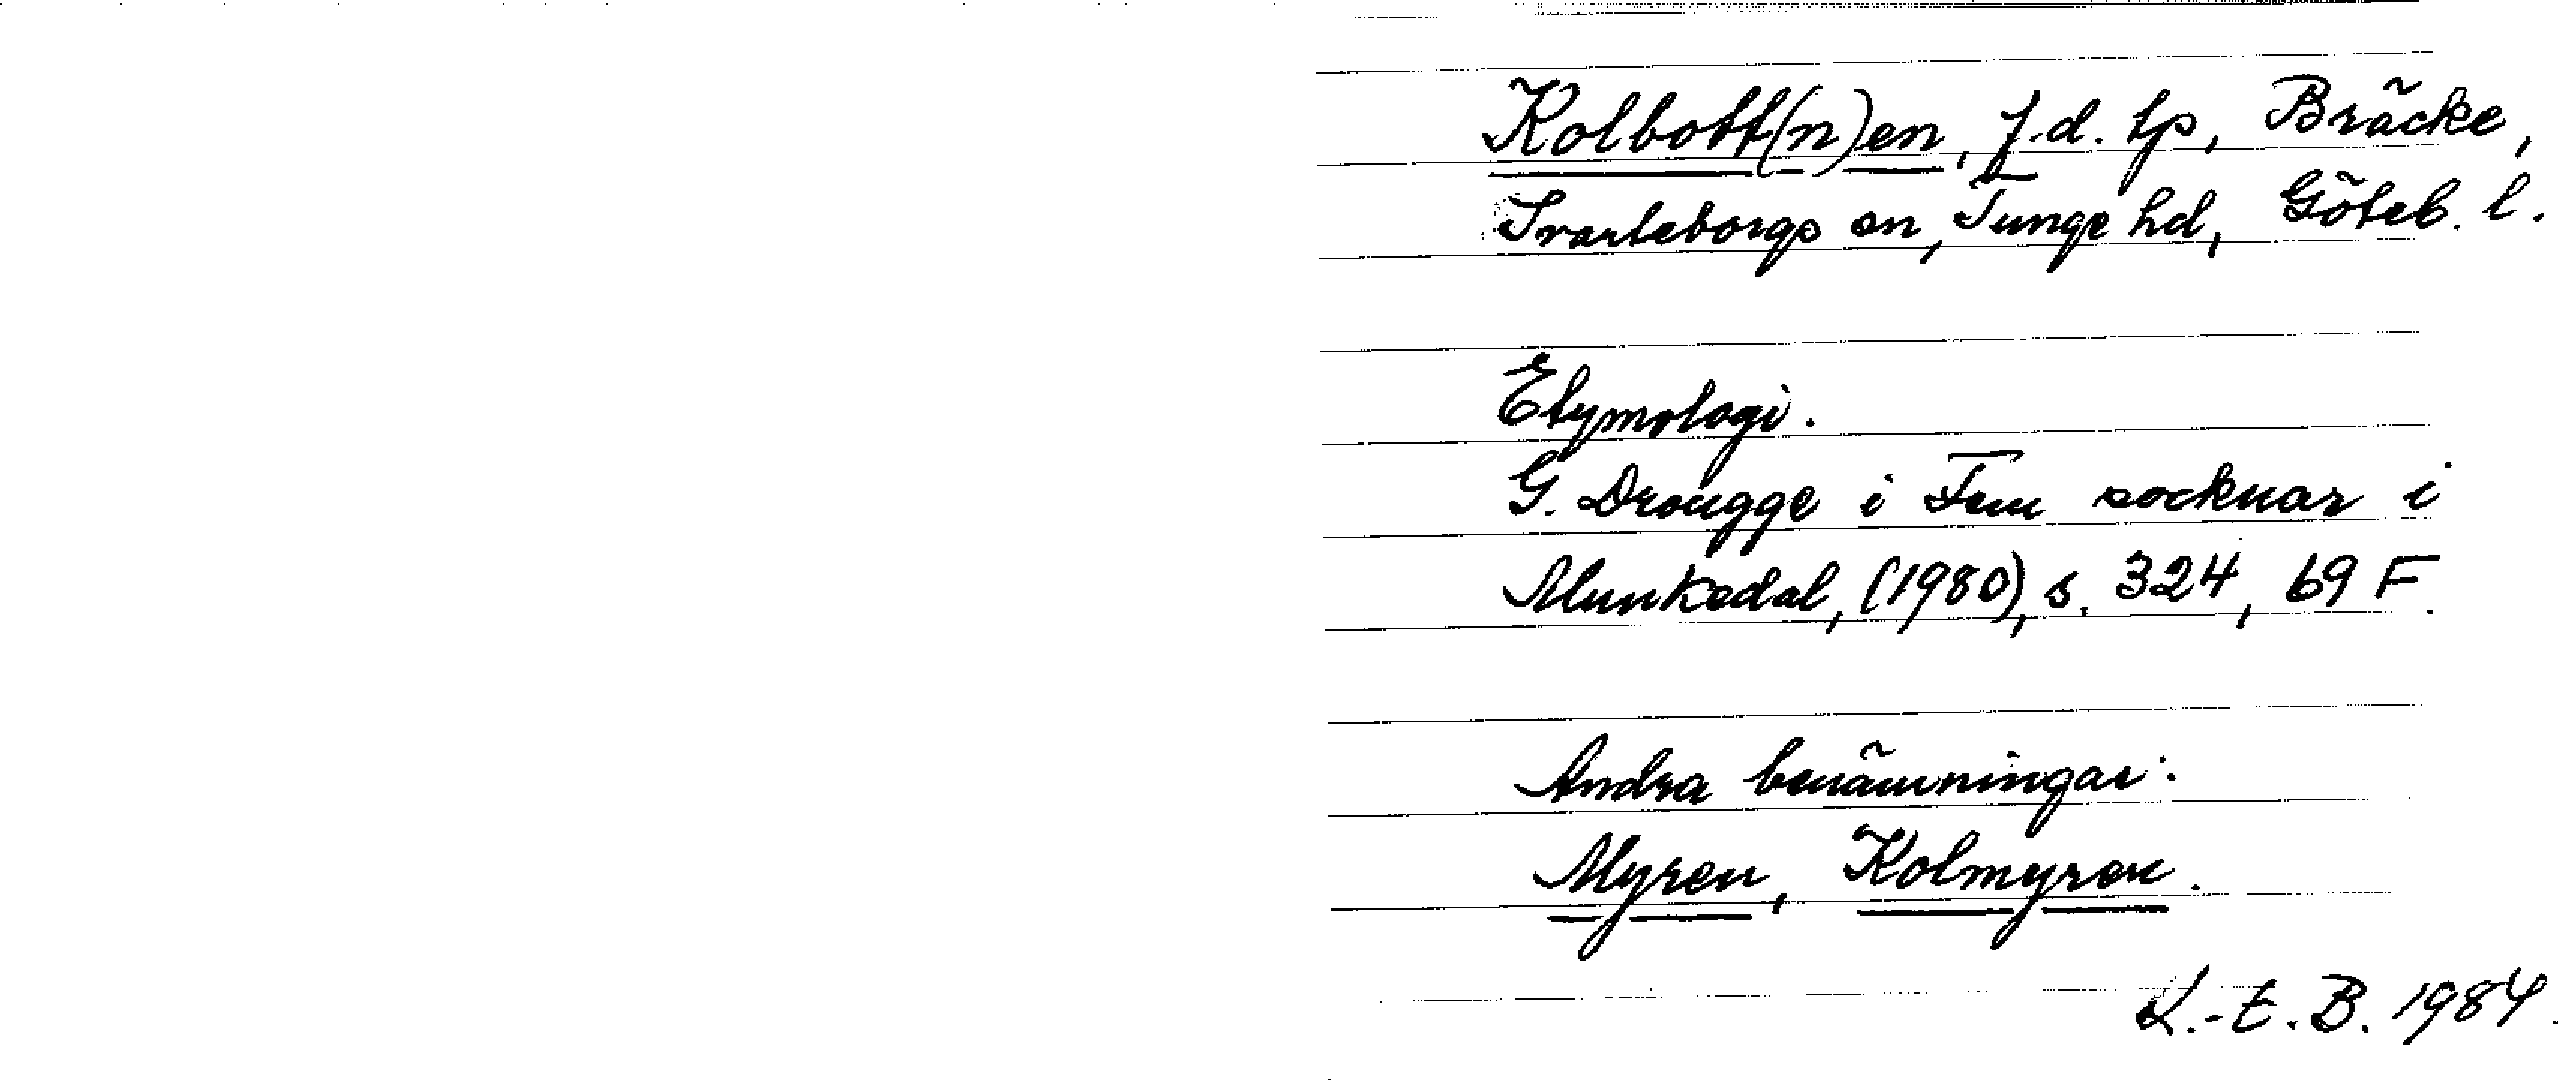 Kolbott(n)en, f.d. tp, Bräcke,
Svarteborgs sn, Tunge hd, Göteb. l.
Etymologi.
G. Drougge i Fem socknar i
Munkedal, (1980), s. 324, 69 F.
Andra benämningar:
Myren, Kolmyren.
L.-E. B. 1984.